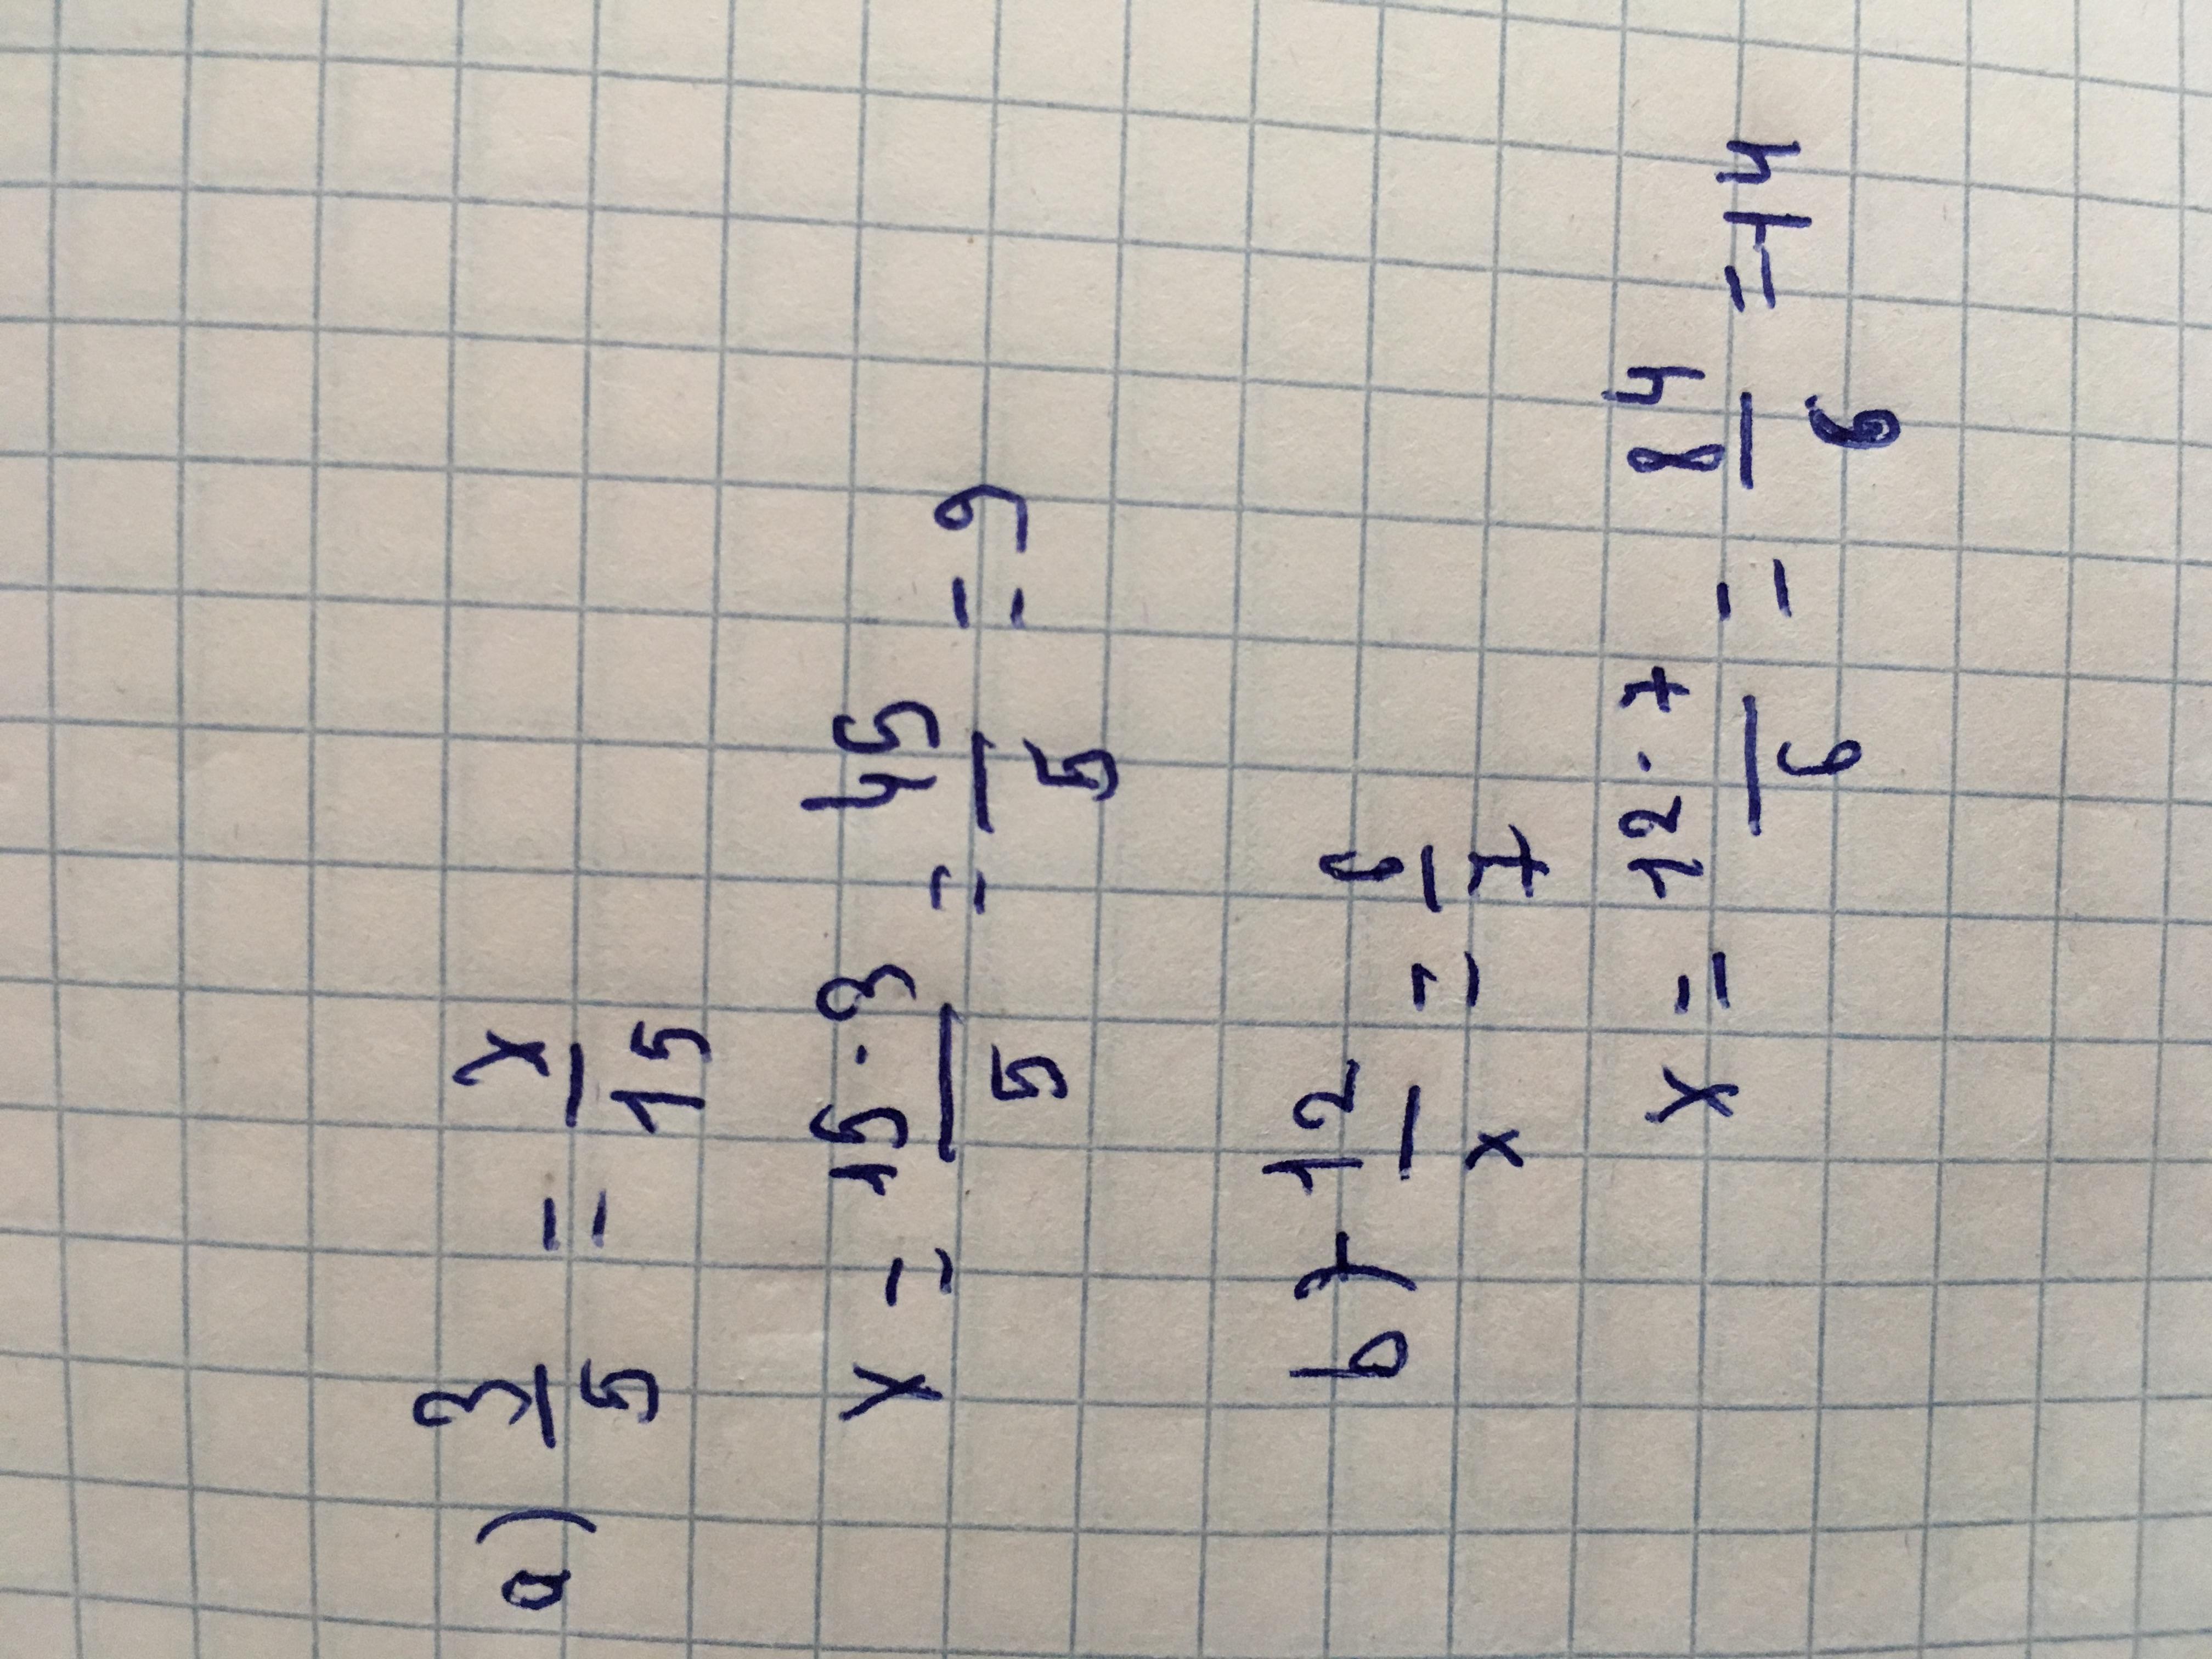 a) 3/5 = x/15
x = 15·3/5 = 45/5 = 9
b) 12/x = 6/7
x = 12·7/6 = 84/6 = 14